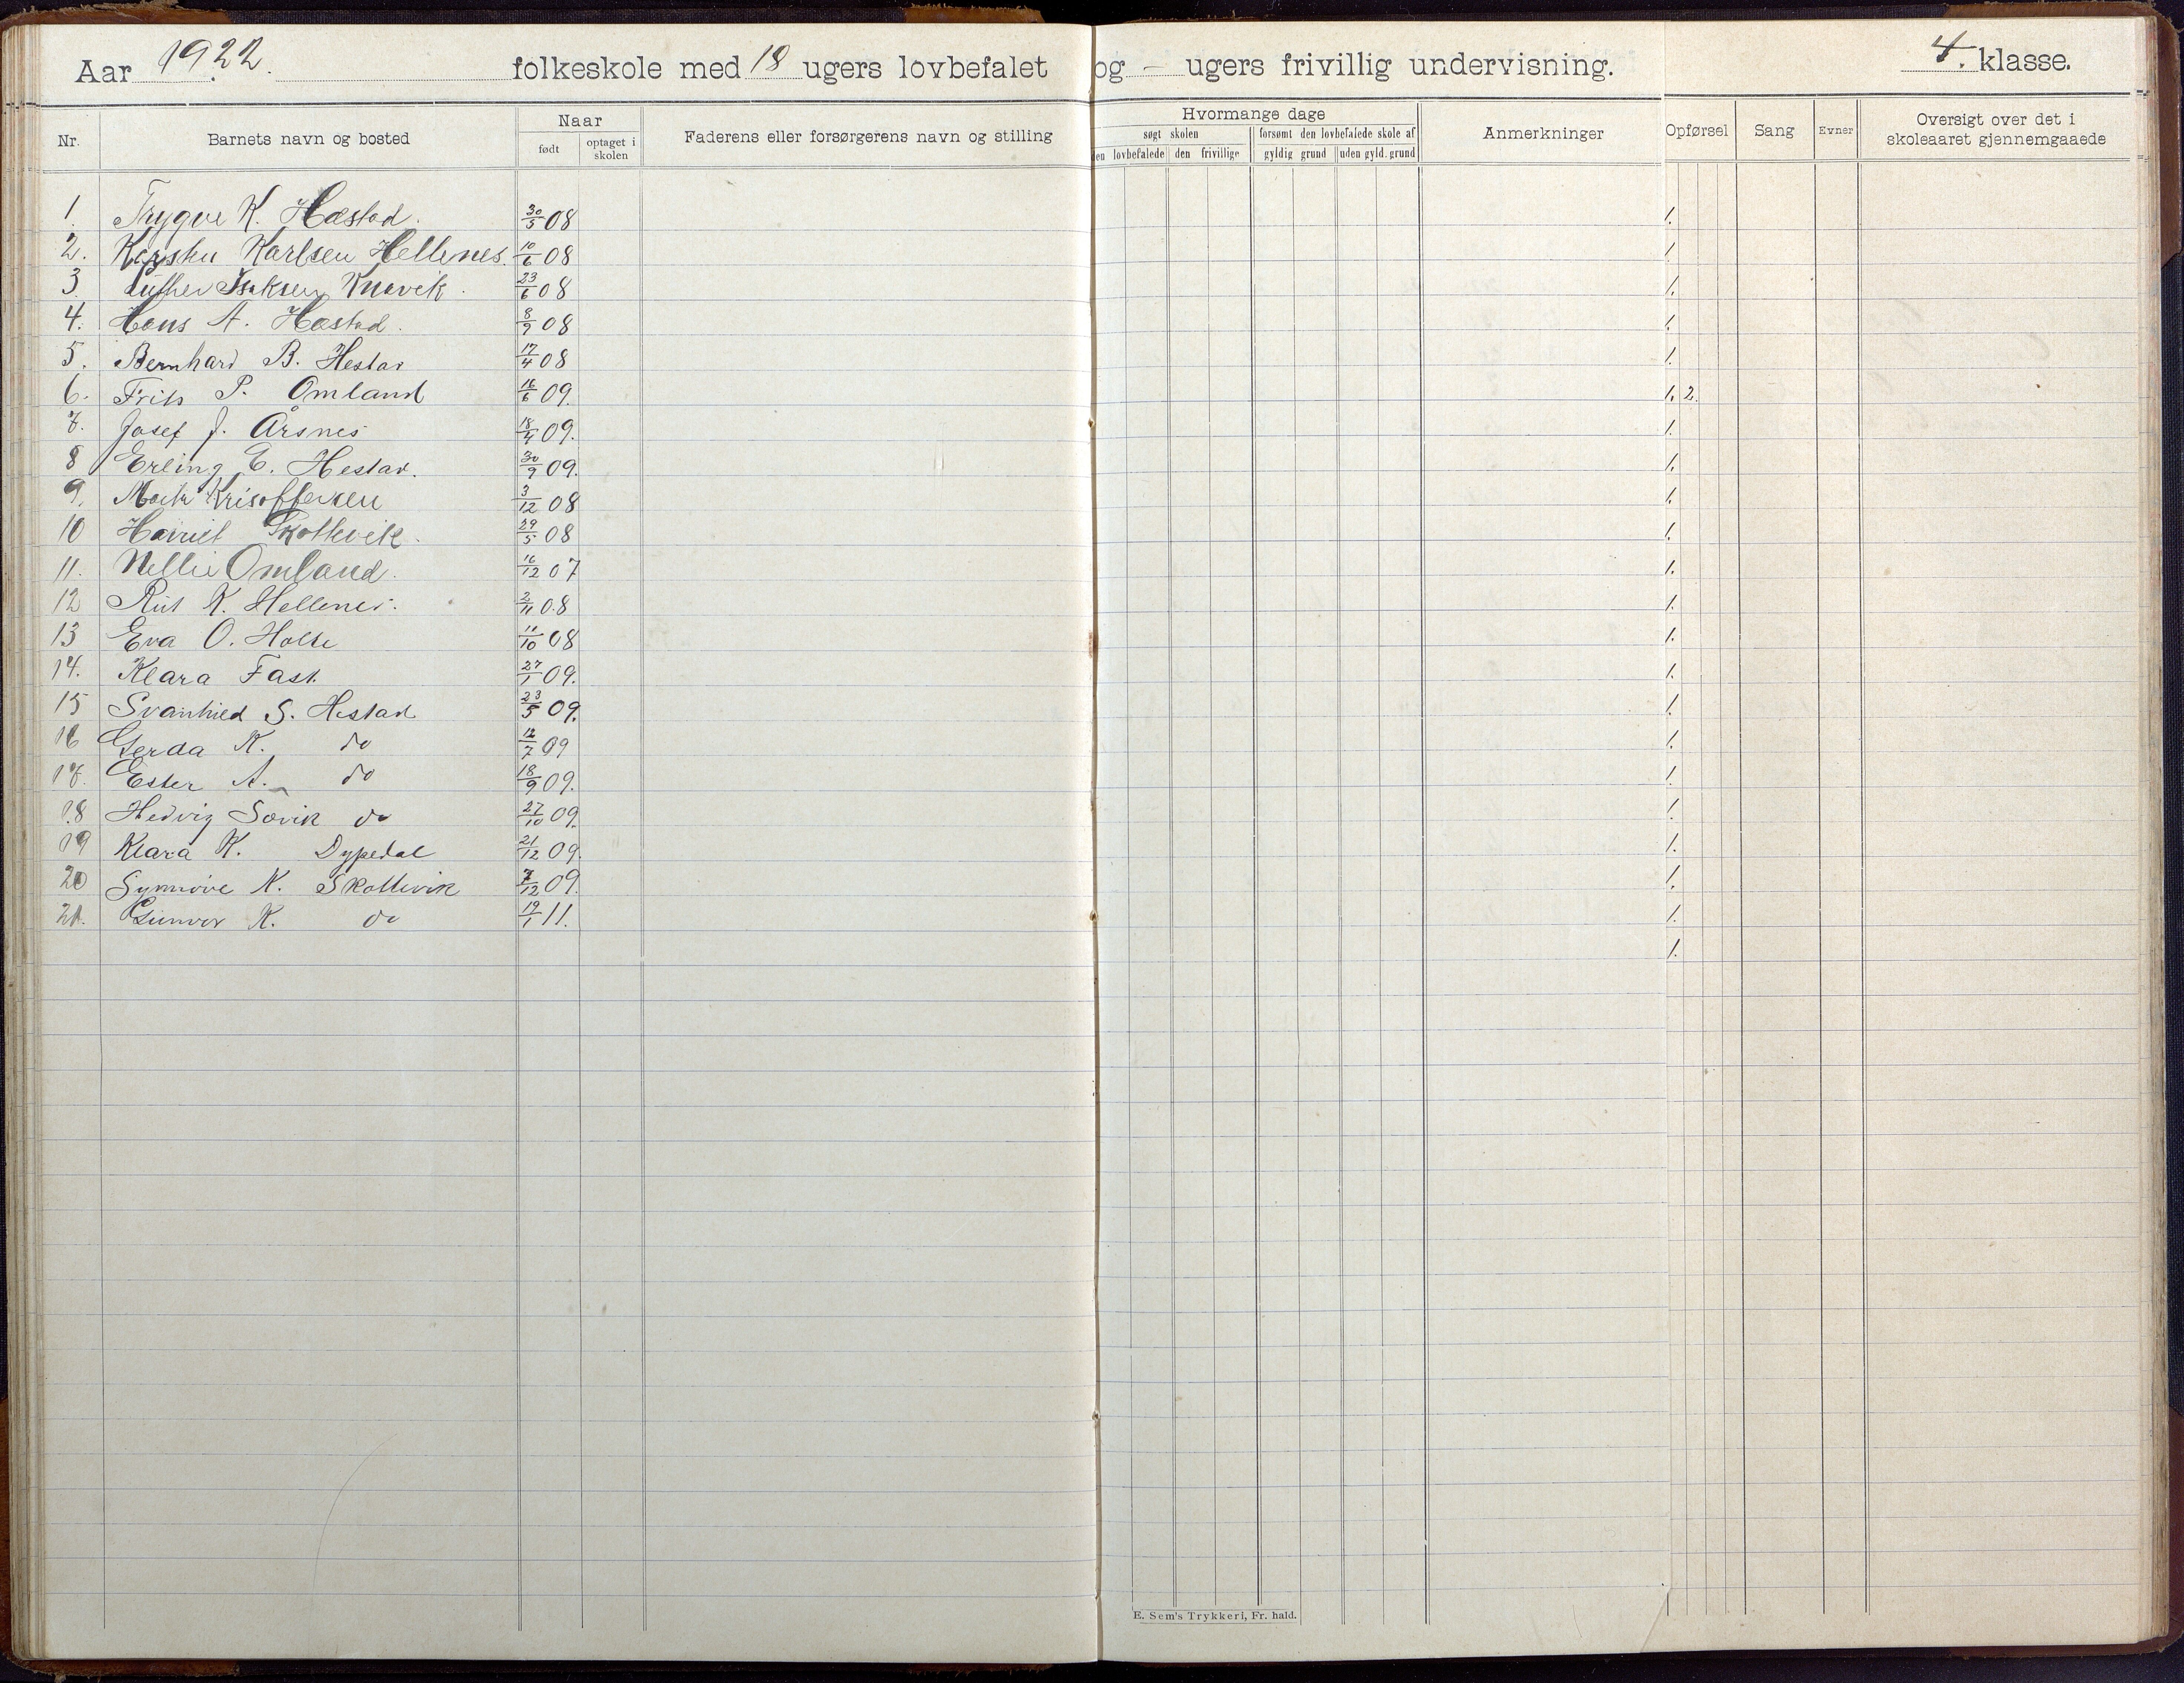 Aar 1922. folkeskole med 18 ugers lovbefalet og - ugers frivillig undervisning. 4. klasse.
Nr. Barnets navn og bosted Naar født optaget i skolen Faderens eller forsørgerens navn og stilling Hvormange dage søgt skolen den lovbefalede den frivillige forsømt den lovbefalede skole af gyldig grund uden gyld. grund Anmerkninger Opførsel Sang Evner Oversigt over det i skoleaaret gjennemgaaede
1. Trygve K. Hæstad. 30/5 08 1.
2. Karsten Karlsen Hellenes. 10/6 08 1.
3. Luther Isaksen Knævik. 23/6 08 1.
4. Hans A. Hæstad. 8/9 08 1.
5. Bernhard B. Hestad 17/4 08 1.
6. Frits P. Omland 16/6 09. 1. 2.
7. Josef J. Årsnes 18/4 09. 1.
8 Erling E. Hestad. 30/9 09. 1.
9. Krisoffersen 3/12 08 1.
10 Harriet Skottevik. 29/5 08 1.
11. Nellie Omland. 16/12 07 1.
12 Rut K. Hellenes. 2/11 08 1.
13 Eva O. Holte 11/10 08 1.
14. Klara Fast. 27/1 09. 1.
15 Svanhild S. Hestad 23/5 09. 1.
16 Gerda K. do 12/7 09 1.
17. Ester A. do 18/9 09. 1.
18 Hedvig Søvik do 27/10 09. 1.
19 Klara K. Dypedal 21/12 09. 1.
20 Synnøve K. Skottevik 7/12 09. 1.
21. Gunvor K. do 19/1 11. 1.
1.
E. Sem's Trykkeri, Fr. hald.